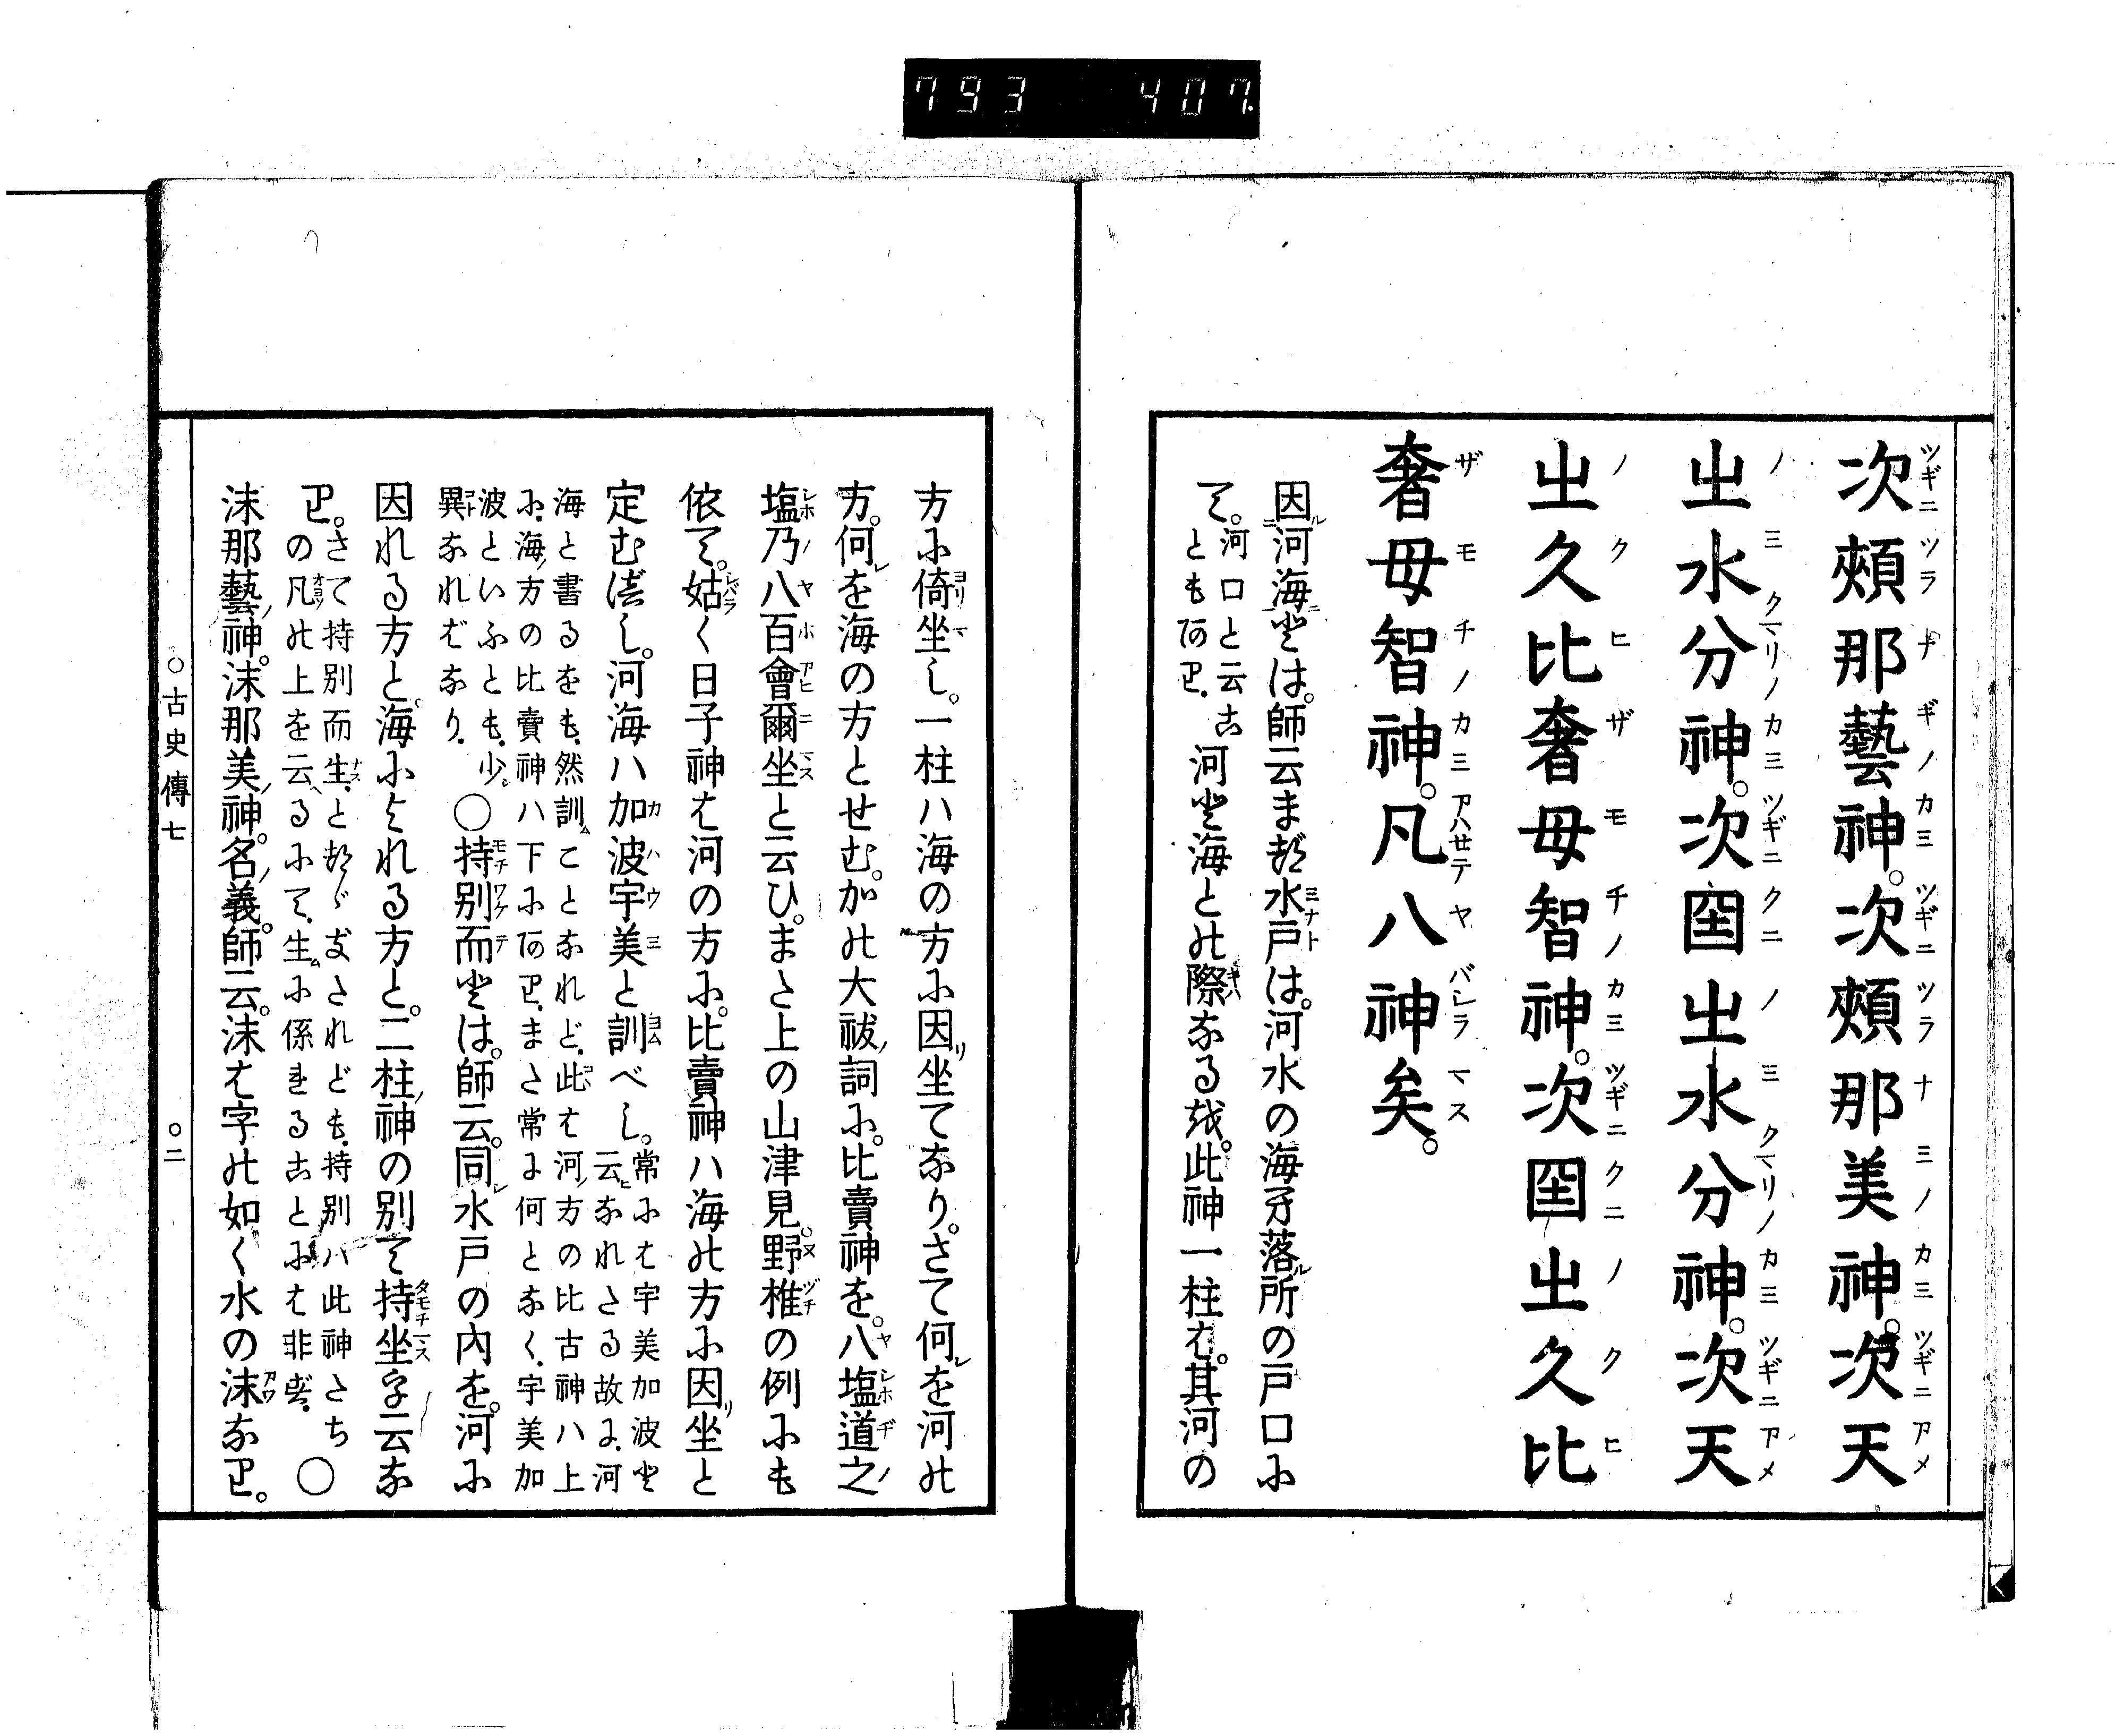 793 407
次頰那藝神。次頰那美神。次天
㞢水分神。次国㞢水分神。次天
㞢久比奢母智神。次国㞢久比
奢母智神。凡八神矣。
因河海とは。師云まづ水戸は。河水の海に落所の戸口に
て。河口と云こともあり。河と海との際なるを。此神一柱は。其河の
方に倚坐し。一柱ハ海の方に因坐てなり。さて何を河の
方。何を海の方とせむ。かの大祓詞に。比賣神を。八塩道之
塩乃八百會爾坐と云ひ。また上の山津見。野椎の例にも
依て。姑く日子神は河の方に。比賣神ハ海の方に因坐と
定むべし。河海ハ加波宇美と訓べし。常には宇美加波と云なれたる故に、河
海と書るをも、然訓ことなれど、此は河方の比古神ハ上
に、海方の比賣神ハ下にあり、また常に何となく、宇美加
波といふとも、少異なればなり。〇持別而とは。師云。同水戸の内を。河に
因れる方と。海によれる方と。二柱神の別て持坐を云な
り。さて持別而生、とつゞきたれども、持別ハ此神たち
の凡の上を云るにて、生に係れることには非ず。〇
沫那藝神。沫那美神。名義。師云。沫は字の如く水の沫なり。
〇古史傳七 〇二